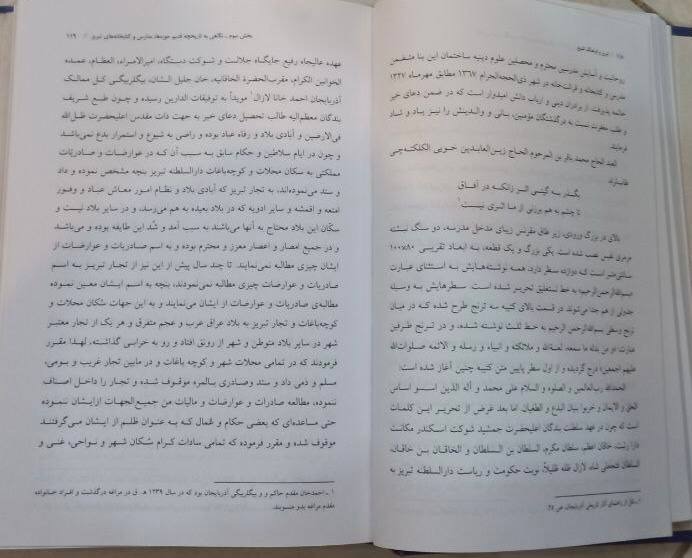 ۱۱۸
روحانیت و آسایش مدرسین محترم و محصلین علوم دینیه ساختمان این بنا متضمن
مدرس و کتابخانه و قرائت‌خانه در شهر ذی‌الحجة‌الحرام ۱۳۶۷ مطابق مهرماه ۱۳۲۷
خاتمه پذیرفت. از برادران دینی و ارباب دانش امیدوار است که در ضمن دعای خیر
و طلب مغفرت نسبت به درگذشتگان مؤمنین، بانی و والدینش را نیز یاد و شاد
فرمایند.
العبد الحاج محمد باقر بن المرحوم الحاج زین‌العابدین خویی الکلکته‌چی
بگذر به گیتی اثر زانکه در آفاق
تا چشم به هم برزنی از ما اثری نیست۱
بالای در بزرگ ورودی، زیر طاق مقرنس زیبای مدخل مدرسه، دو سنگ نبشته
مرمری نفیس نصب شده است. یکی بزرگ و یک قطعه، به ابعاد تقریبی ۸۰×۱۰۰
سانتی‌متر است که دوازده سطر دارد. همه نوشته‌هایش به استثنای عبارت
«بسم‌الله‌الرحمن‌الرحیم» به خط نستعلیق تحریر شده است. سطرهایش به وسیله
جدولی از هم جدا می‌شوند. در قسمت بالای کتیبه سه ترنج طرح شده که در میان
ترنج وسطی بسم‌الله‌الرحمن الرحیم به خط ثلث نوشته شده، و در ترنج طرفین
عبارت: «و من بدله ما سمعه، لعنة‌الله و ملائکته و انبیاء و رسله و الائمه صلوات‌الله
علیهم اجمعین» درج گردیده و از اول سطر پایین متن کتیبه چنین آغاز شده است:
الحمدلله رب‌العالمین و الصلوة و السلام علی محمد و آله الذین اسسوا اساس
الحق و الایمان و خربوا بنیان البدع و الطغیان. اما بعد غرض از تحریر این کلمات
است که چون در عهد سلطنت بندگان اعلیحضرت جمشید شوکت اسکندر مکانت
دارا رایت، خاقان اعظم، سلطان مکرم، السلطان بن السلطان و الخاقان بن خاقان،
السلطان فتحعلی شاه، لازال ظله ظلیلاً، نوبت حکومت و ریاست دارالسلطنه تبریز به
۱ـ نقل از راهنمای آثار تاریخی آذربایجان، ص
بخش سوم ـ نگاهی به تاریخچه قدیم حوزه‌ها، مدارس و کتابخانه‌های تبریز / ۱۱۹
عهده عالیجاه رفیع جایگاه جلالت و شوکت دستگاه، امیرالامراء العظام، عمده
الخوانین الکرام، مقرب‌الحضرة الخاقانیه، خان جلیل الشان، بیگلربیگی کل ممالک
آذربایجان احمد خانا لازال۱ مویداً به توفیقات الدارین رسیده و چون طبع شریف
بندگان معظم‌الیه طالب تحصیل دعای خیر به جهت ذات مقدس اعلیحضرت ظل‌الله
فی‌الارضین و آبادی بلاد و رفاه عباد بوده و راضی به شیوع و استمرار بدع نمی‌باشد
و چون در ایام سلاطین و حکام سابق به سبب آن که در عوارضات و صادریات
مملکتی به سکان محلات و کوچه‌باغات دارالسلطنه تبریز بنچه مشخص نموده و داد
و ستد می‌نموده‌اند، به تجار تبریز که آبادی بلاد و نظام امور معاش عباد و وفور
امتعه و اقمشه و سایر ادویه که در بلاد بعیده به هم می‌رسد، و در سایر بلاد نیست و
سکان این بلاد محتاج به آنها می‌باشند به سبب آمد و شد این طایفه بوده و می‌باشد
و در جمیع امصار و اعصار معزز و محترم بوده و به اسم صادریات و عوارضات از
ایشان چیزی مطالبه نمی‌نمایند. تا چند سال پیش از این نیز از تجار تبریز به اسم
صادریات و عوارضات چیزی مطالبه‌ی نمی‌نمودند، بنچه به اسم ایشان معین نموده
مطالبه‌ی صادریات و عوارضات از ایشان می‌نمایند و به این جهات سکان محلات و
کوچه‌باغات و تجار تبریز به بلاد عراق عرب و عجم متفرق و هر یک از تجار معتبر
شهر در سایر بلاد متوطن و شهر از رونق افتاد و رو به خرابی گذاشته، لهذا مقرر
فرمودند که در تمامی محلات شهر و کوچه باغات و در مابین تجار غریب و بومی،
مسلم و ذمی داد و ستد وصادری بالمره موقوف شده و تجار را داخل اصناف
ننموده، مطالعه صادرات و عوارضات و مالیات من جمیع‌الجهات ازایشان ننموده
حتی مساعده‌ای که بعضی حکام و عُمال که به عنوان ظلم از ایشان می‌گرفتند
موقوف شده و مقرر فرموده که تمامی سادات کرام سُکان شهر و نواحی، غنی و
۱ ـ احمدخان مقدم حاکم و و بیگلربیگی آذربایجان بود که در سال ۱۲۳۹ هـ. ق در مراغه درگذشت و افراد خانواده
مقدم مراغه بدو منسوبند.